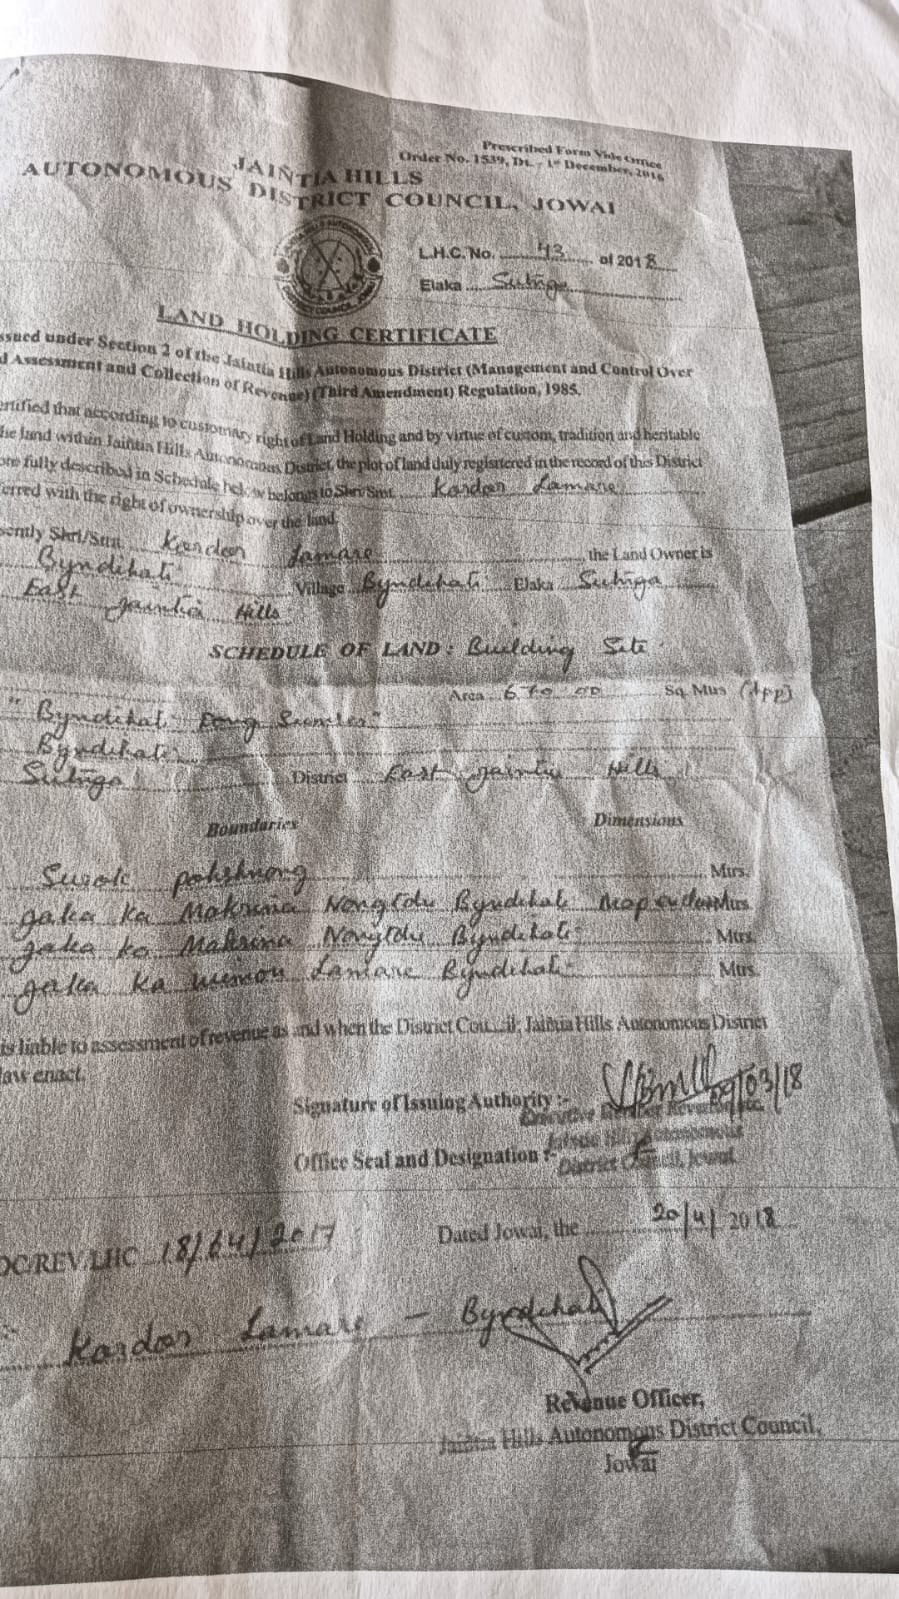 Prescribed Form Vide Office
Order No. 1539, Dt. - 1st December, 2016
JAIÑTIA HILLS
AUTONOMOUS DISTRICT COUNCIL, JOWAI
L.H.C. No. 43 of 2018
Elaka Sutnga
LAND HOLDING CERTIFICATE
ssued under Section 2 of the Jaintia Hills Autonomous District (Management and Control Over
d Assessment and Collection of Revenue) (Third Amendment) Regulation, 1985.
ertified that according to customary right of Land Holding and by virtue of custom, tradition and heritable
he land within Jaintia Hills Autonomous District, the plot of land duly registered in the record of this District
ore fully described in Schedule below belongs to Shri/Smt. Kardon Lamare
erred with the right of ownership over the land.
sently Shri/Smt. Kardon Lamare the Land Owner is
Byndihati Village Byndihati Elaka Sutnga
East Jaintia Hills
SCHEDULE OF LAND : Building Site
Area 670 Sq. Mtrs (App)
"Byndihati
Byndihati
Sutnga District East Jaintia Hills
Boundaries Dimensions
Surok pohshnong Mtrs.
jaka ka Makrina Nongtdu Byndihati Mtrs.
jaka ka Makrina Nongtdu Byndihati Mtrs.
jaka ka Lamare Byndihati Mtrs.
is liable to assessment of revenue as and when the District Council, Jaintia Hills Autonomous District
law enact.
Signature of Issuing Authority :- 09/03/18
Executive Member Revenue
Jaintia Hills Autonomous
Office Seal and Designation :- District Council, Jowai
DC/REV/LHC 18/64/2017 Dated Jowai, the 20/4/2018
Kardon Lamare - Byndihati
Revenue Officer,
Jaintia Hills Autonomous District Council,
Jowai